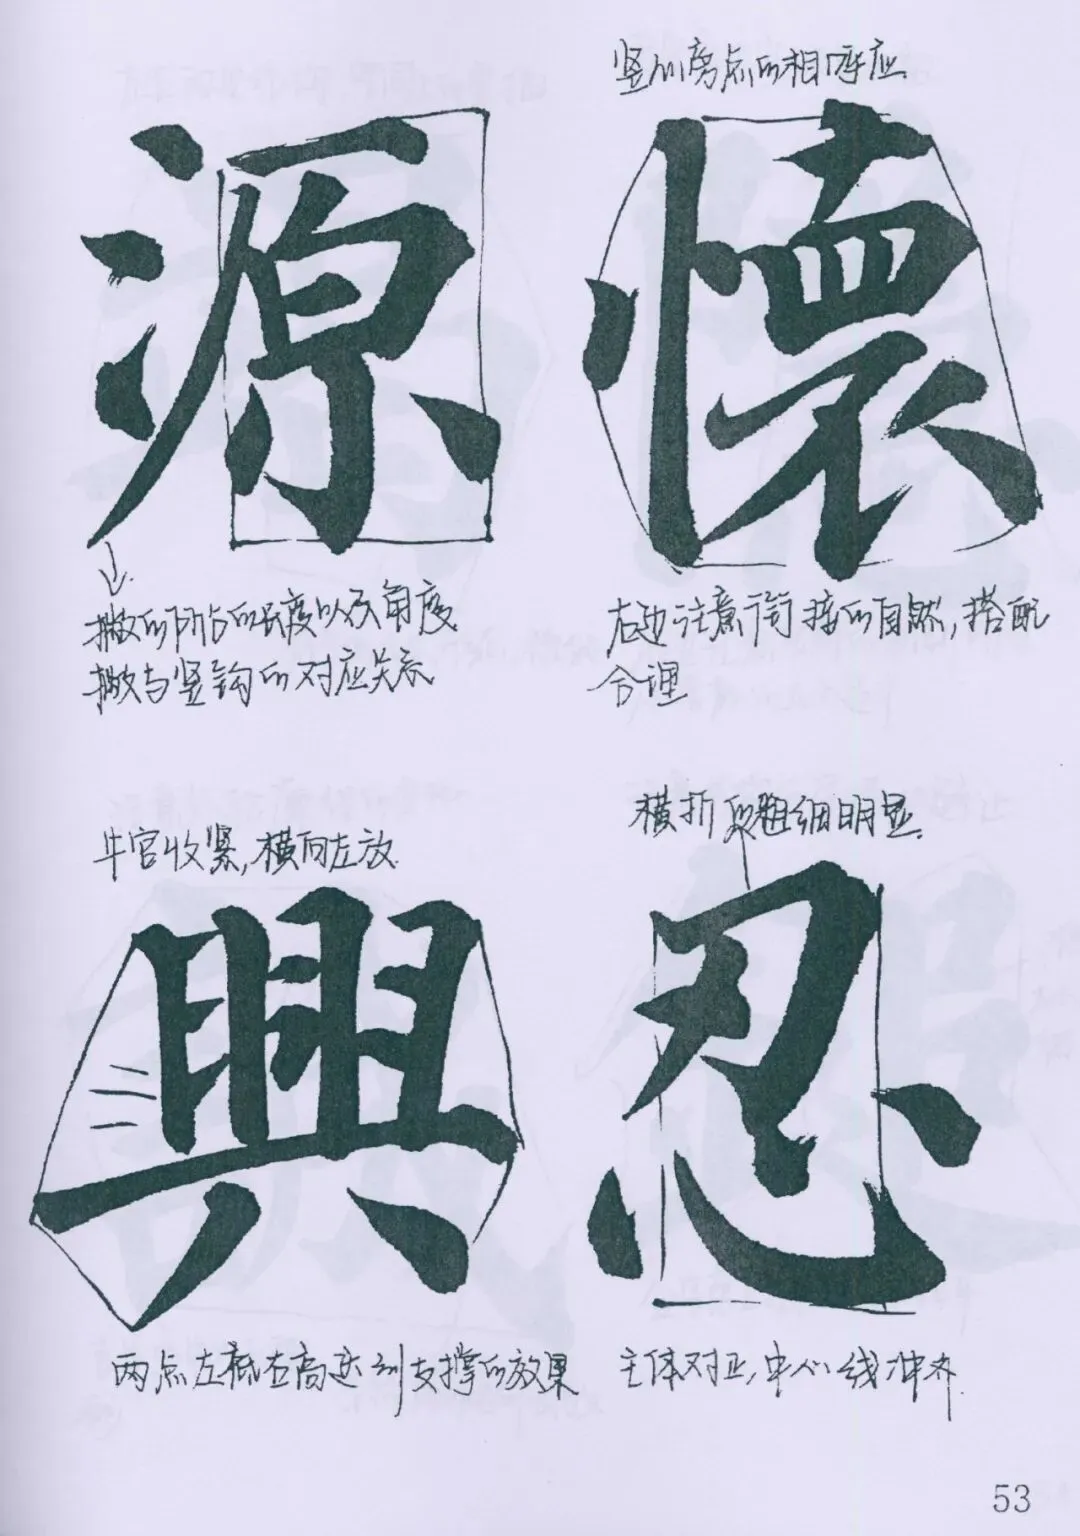 源
撇的阶台的长度以及角度
撇与竖钩的对应关系
竖心旁点的相呼应
懷
右边注意衔接的自然,搭配
合理
中宫收紧,横向左放
興
两点左低右高达到支撑的效果
横折的粗细明显
忍
主体对正,中心线冲齐
53